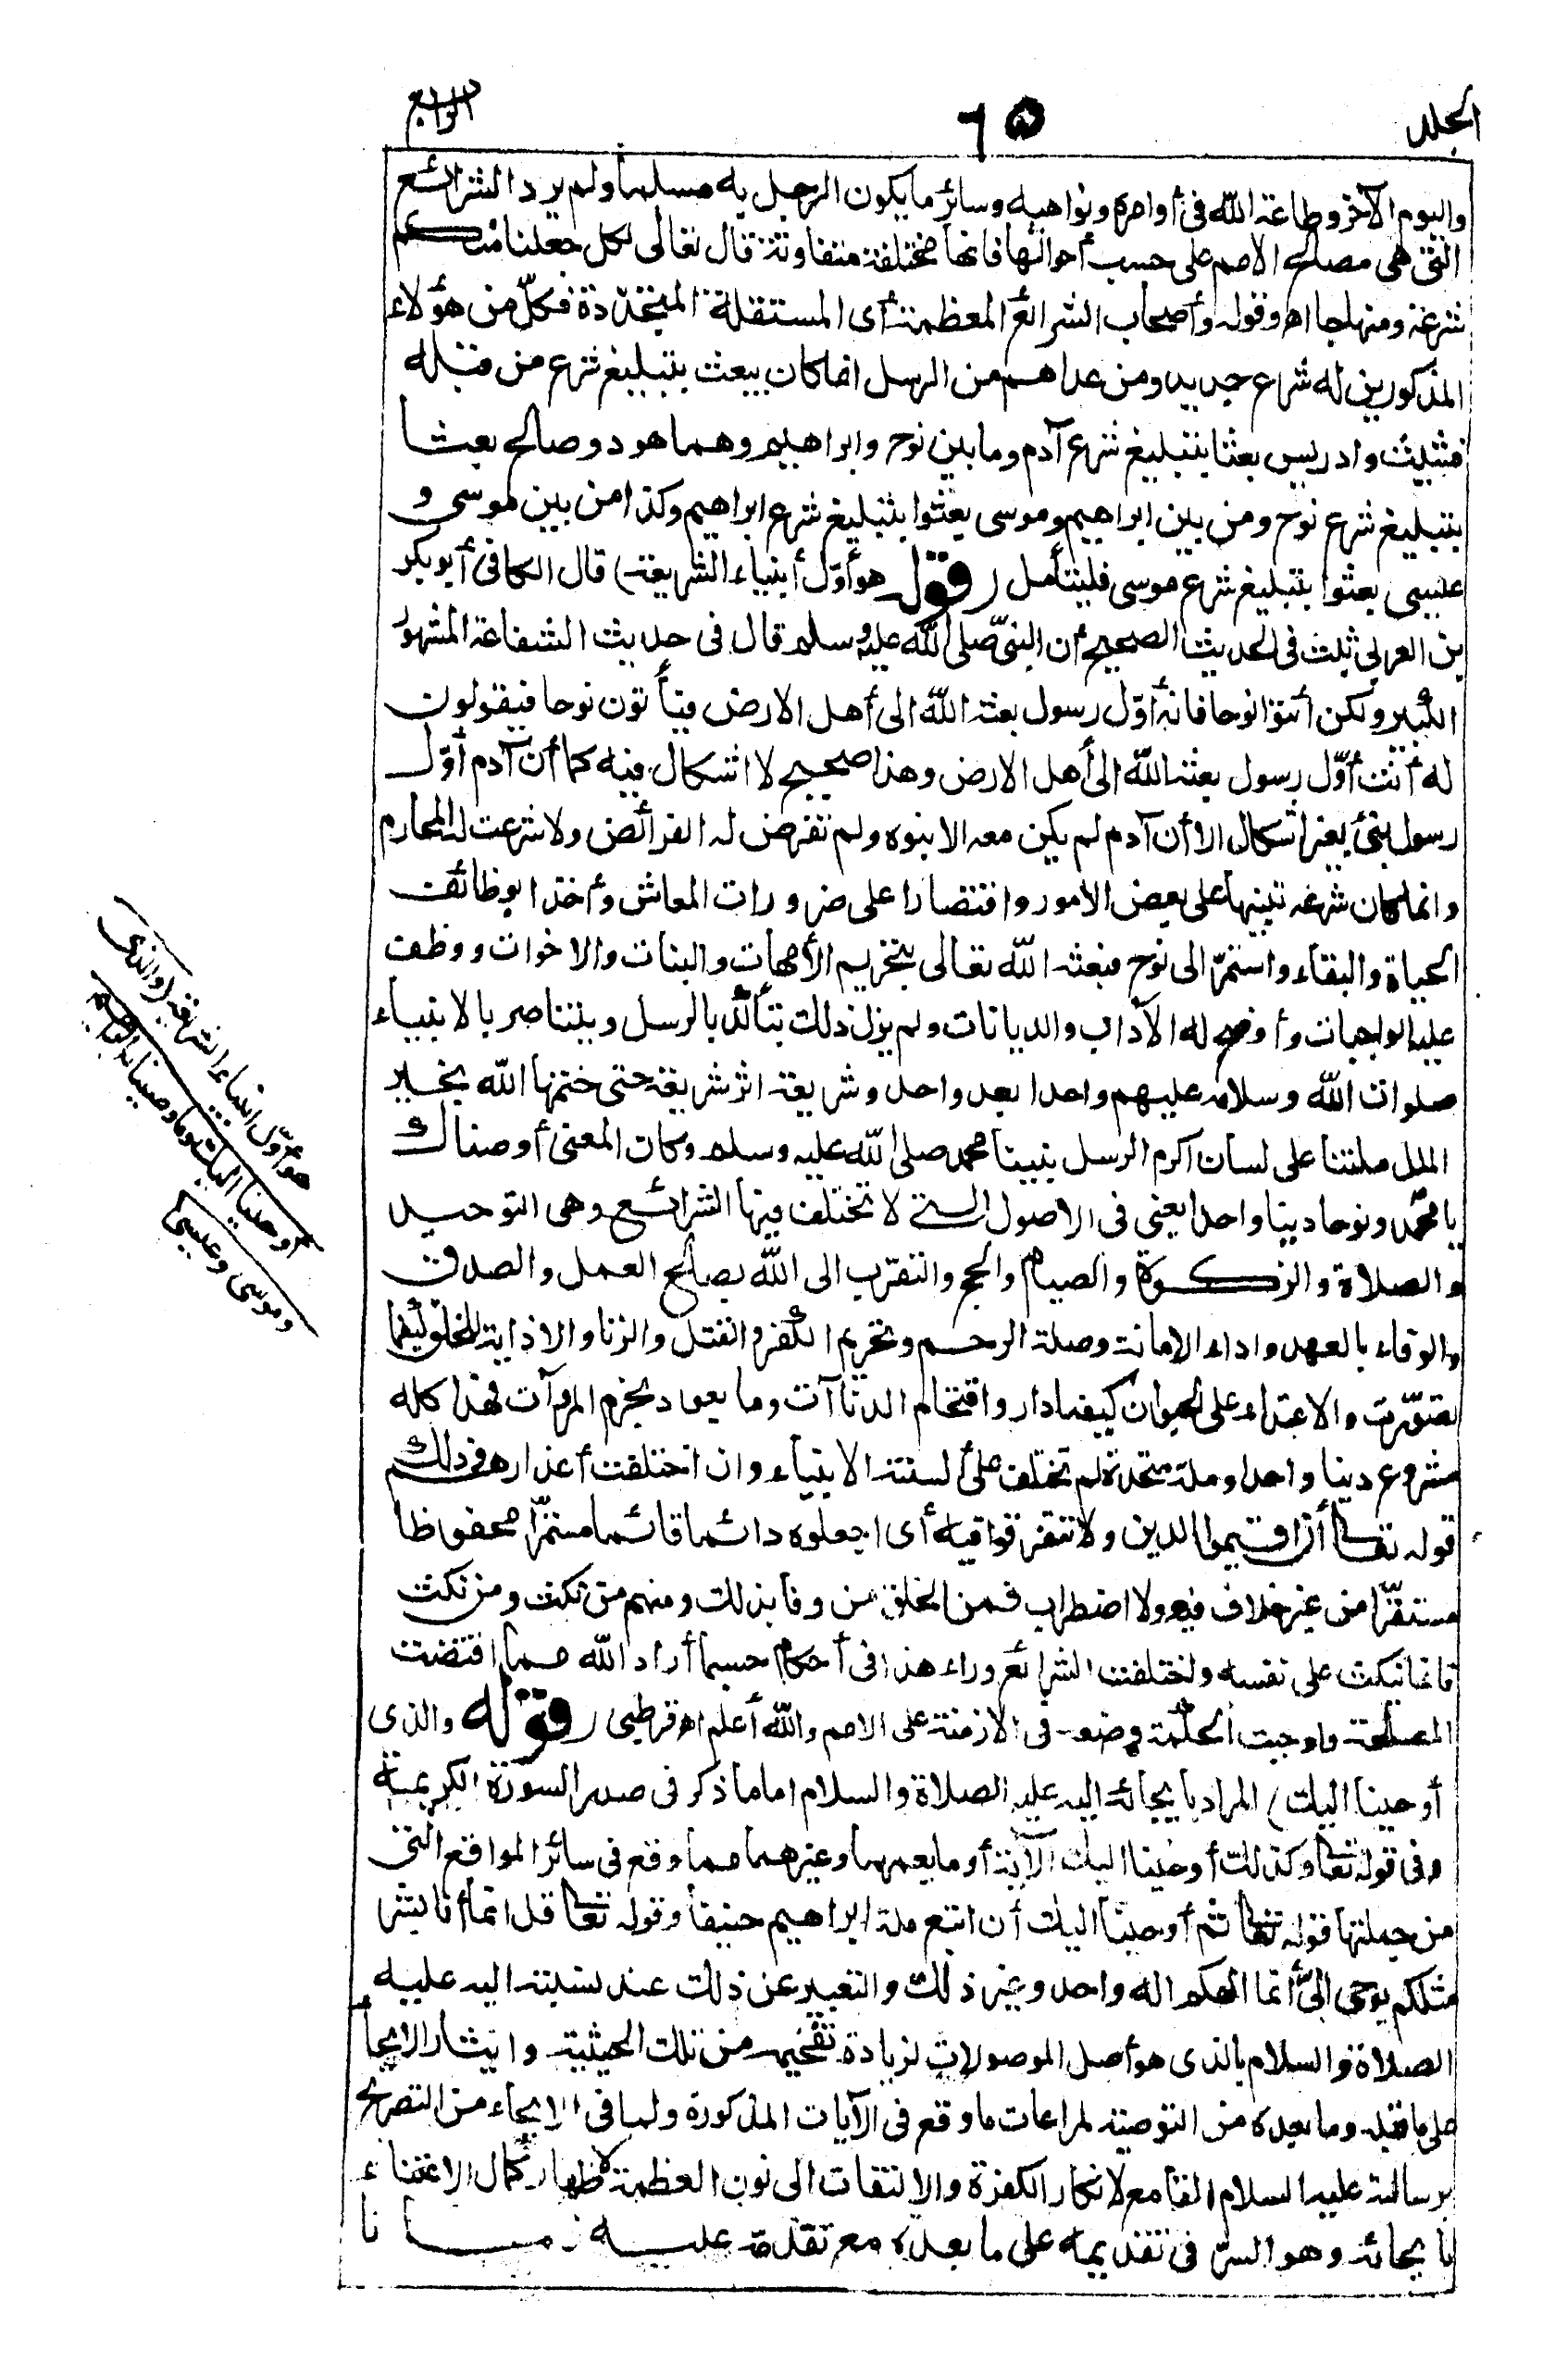 الجلد ٦٥ الرابع
واليوم الآخر وطاعة الله فى أوامره ونواهيه وسائر ما يكون الرجل به مسلما ولم يرد الشرائع
التى هى مصالح الامم على حسب أحوالها فانها مختلفة متفاوتة قال تعالى لكل جعلنا منكم
شرعة ومنهاجا اه وقوله وأصحاب الشرائع المعظمة أى المستقلة المتجددة فكلّ من هؤلاء
المذكورين له شرع جديد ومن عداهم من الرسل انما كان يبعث بتبليغ شرع من قبله
فشيث وادريس بعثا بتبليغ شرع آدم وما بين نوح وابراهيم وهما هود وصالح بعثا
بتبليغ شرع نوح ومن بين ابراهيم وموسى بعثوا بتبليغ شرع ابراهيم وكذا من بين موسى و
عيسى بعثوا بتبليغ شرع موسى فليتأمل (قوله هو أوّل أنبياء الشريعة) قال القاضى أبو بكر
بن العربى ثبت فى الحديث الصحيح أن النبىّ صلى الله عليه وسلم قال فى حديث الشفاعة المشهور
الكبير ولكن أئتوا نوحا فانه أوّل رسول بعثه الله الى أهل الارض فيأتون نوحا فيقولون
له أنت أوّل رسول بعثه الله الى أهل الارض وهذا صحيح لا اشكال فيه كما أن آدم أوّل
رسول بنئ بغير اشكال الا أن آدم لم يكن معه الا بنوه ولم تفرض له الفرائض ولا شرعت له المحارم
وانما كان شرعه تنبيها على بعض الامور واقتصارا على ضرورات المعاش وأخذا بوظائف
الحياة والبقاء واستمرّ الى نوح فبعثه الله تعالى بتحريم الأمهات والبنات والاخوات ووظف
عليه الواجبات وأوضح له الآداب والديانات ولم يزل ذلك يتأكد بالرسل ويتناصر بالانبياء
صلوات الله وسلامه عليهم واحدا بعد واحد وشريعة اثر شريعة حتى ختمها الله بخير
الملل ملتنا على لسان اكرم الرسل نبينا محمد صلى الله عليه وسلم وكان المعنى أوصيناك
يا محمّد ونوحا دينا واحدا يعنى فى الاصول التى لا تختلف فيها الشرائع وهى التوحيد
والصلاة والزكوة والصيام والحج والتقرّب الى الله بصالح العمل والصدق
والوفاء بالعهد واداء الامانة وصلة الرحم وتحريم الكفر والقتل والزنا والاذاية للخلق كيفما
تصوّرت والاعتداء على الحيوان كيفما دار واقتحام الدناآت وما يعود بخرم المروآت فهذا كله
مشروع دينا واحدا وملة متحدة لم تختلف على ألسنة الانبياء وان اختلفت أعدادهم وذلك
قوله تعالى أن اقيموا الدين ولا تتفرقوا فيه أى اجعلوه دائما قائما مستمرّا محفوظا
مستقرّا من غير خلاف فيه ولا اضطراب فمن الخلق من وفا بذلك ومنهم من نكث ومن نكث
فانما ينكث على نفسه واختلفت الشرائع وراء هذا فى أحكام حسبما أراد الله مما اقتضت
المصلحة واوجبت الحكمة وضعه فى الازمنة على الامم والله أعلم اه قرطبى (قوله والذى
أوحينا اليك) المراد بايحائه اليه عليه الصلاة والسلام اما ما ذكر فى صدر السورة الكريمة
وفى قوله تعا وكذلك أوحينا اليك الآية أو ما يعمهما وغيرهما مما وقع فى سائر المواقع التى
من جملتها قوله تعا ثم أوحينا اليك أن اتبع ملة ابراهيم حنيفا وقوله تعا قل انما أنا بشر
مثلكم يوحى الىّ أنما الهكم اله واحد وغير ذلك والتعبير عن ذلك عند نسبته اليه عليه
الصلاة والسلام بالذى هو أصل الموصولات لزيادة تفخيمه من تلك الحيثية وايثار الايحأ
على ما قبله وما بعده من التوصية لمراعات ما وقع فى الآيات المذكورة ولما فى الايحاء من التصريح
برسالته عليه السلام القامع لانكار الكفرة والالتفات الى نون العظمة لاظهار كمال الاعتناء
بايحائه وهو السرّ فى تقديمه على ما بعده مع تقدمه عليه زمانا
هو أوّل انبياء الشريعة (والذى
أوحينا اليك وما وصينا به ابراهيم
وموسى وعيسى)